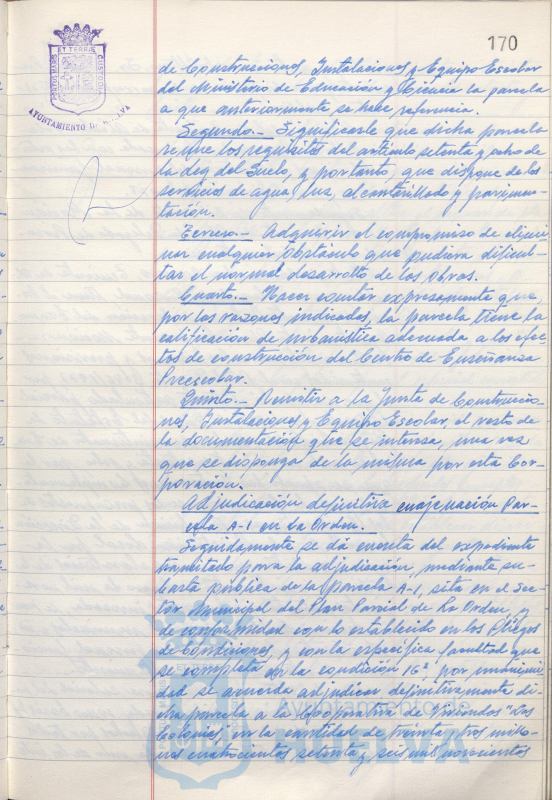 170
AYUNTAMIENTO DE HUELVA
de Construcciones, Instalaciones y Equipo Escolar
del Ministerio de Educación y Ciencia la parcela
a que anteriormente se hace referencia.
Segundo.- Significarle que dicha parcela
reune los requisitos del artículo setenta y ocho de
la Ley del Suelo, y por tanto, que dispone de los
servicios de agua, luz, alcantarillado y pavimen-
tación.
Tercero.- Adquirir el compromiso de elimi-
nar cualquier obstáculo que pudiera dificul-
tar el normal desarrollo de las obras.
Cuarto.- Hacer constar expresamente que,
por las razones indicadas, la parcela tiene la
calificación de urbanística adecuada a los efec-
tos de construcción del Centro de Enseñanza
Preescolar.
Quinto.- Remitir a la Junta de Construccio-
nes, Instalaciones y Equipo Escolar, el resto de
la documentación que se interesa, una vez
que se disponga de la misma por esta Cor-
poración.
Adjudicación definitiva enajenación Par-
cela A-1 en La Orden.
Seguidamente se dá cuenta del expediente
tramitado para la adjudicación, mediante su-
basta pública de la parcela A-1, sita en el Sec-
tor Municipal del Plan Parcial de La Orden, y
de conformidad con lo establecido en los Pliegos
de Condiciones, y con la específica facultad que
se completa en la condición 16ª, por unanimi-
dad se acuerda adjudicar definitivamente di-
cha parcela a la Cooperativa de Viviendas "Las
Colonias, en la cantidad de treinta y tres millo-
nes cuatrocientos setenta y seis mil novecientos
Ayuntamiento de